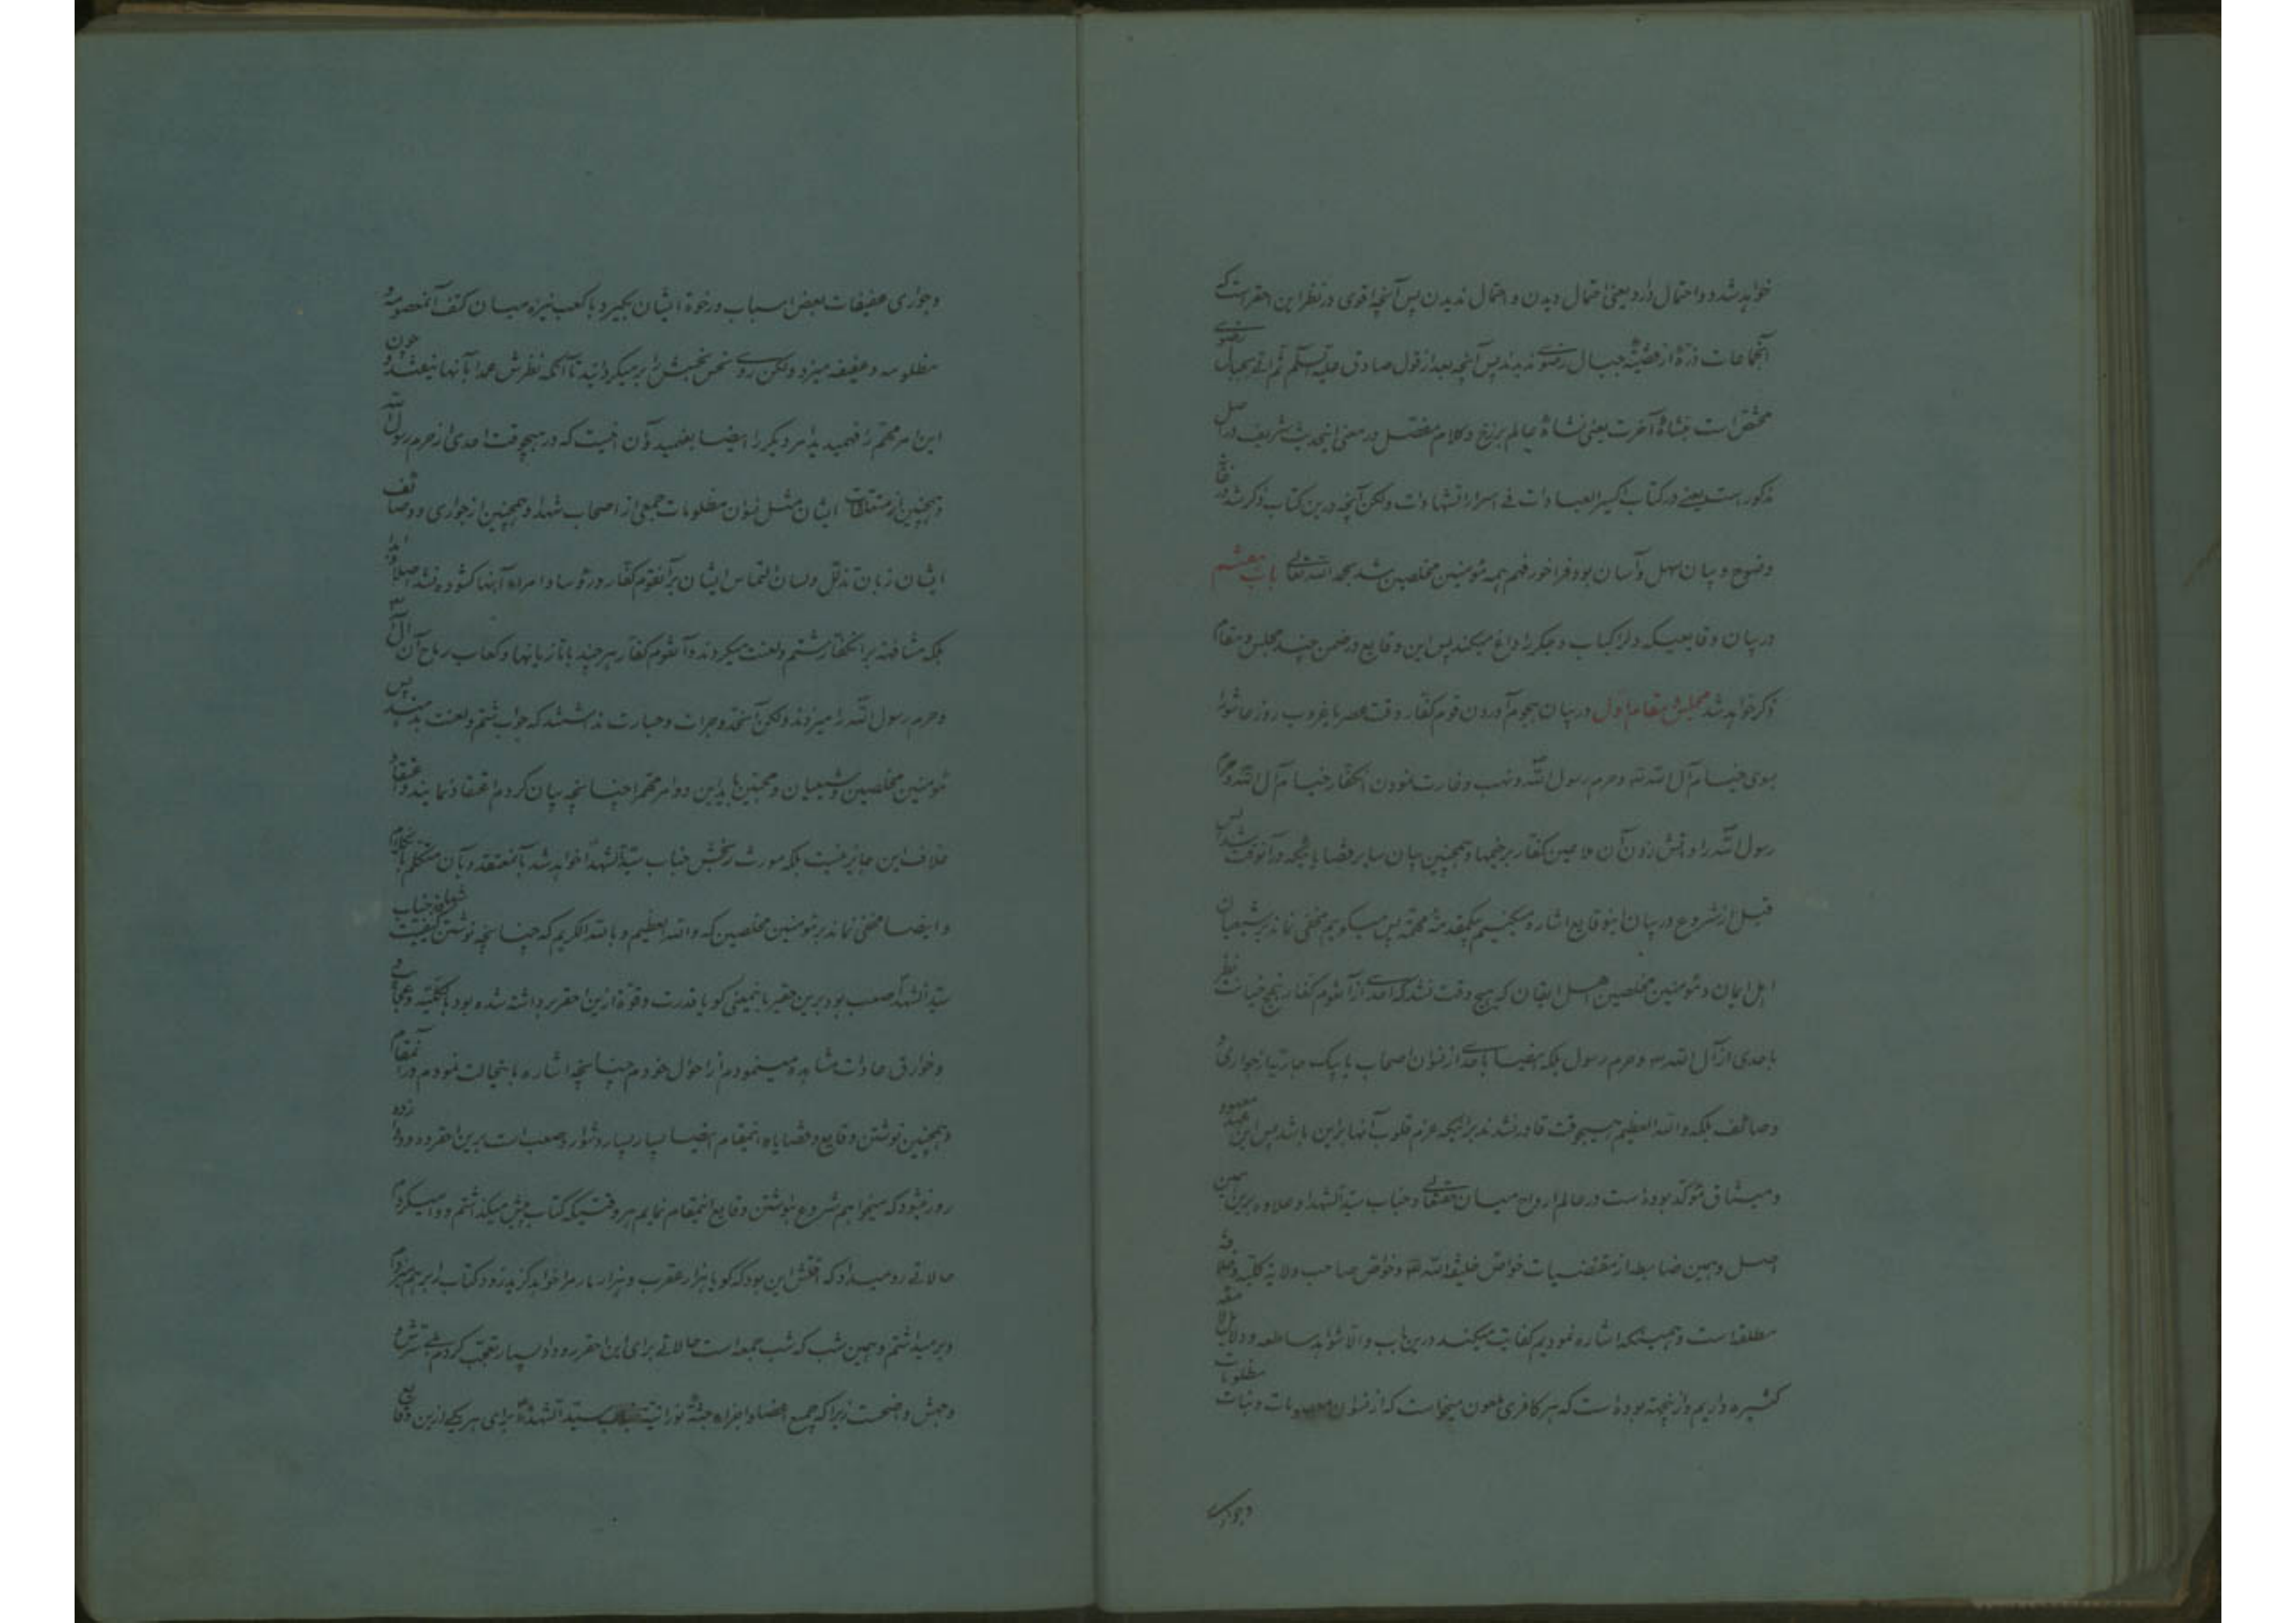 خواهد شد و احتمال دارد یعنی احتمال دیدن و احتمال ندیدن پس آنچه اقوی در نظر این احقر است که
آنجماعت ذرهٔ از قضیّهٔ جبال رضوی ندیدند پس آنچه بعد از قول صادق علیه السلم ثم لقی بجبال رضوی
مختص است بنشاهٔ آخرت یعنی نشاهٔ عالم برزخ و کلام مفصل در معنی اینحدیث شریف در اصل
مذکور است یعنی در کتاب اکسیر العبادات فی اسرار الشهادات ولکن آنچه درین کتاب ذکر شد در غایة
وضوح و بیان سهل و آسان بود فراخور فهم همه مؤمنین مخلصین شد بحمد الله تعالی باب هشتم
در بیان وقایعیکه دلرا کباب و جگر را داغ میکند پس این وقایع در ضمن چند مجلس و مقام
ذکر خواهد شد مجلس و مقام اول در بیان هجوم آوردن قوم کفار وقت عصر یا غروب روز عاشورا
بسوی خیام آل الله و حرم رسول الله و نهب و غارت نمودن آنکفار خیام آل الله و حرم
رسول الله را و آتش زدن آن ملاعین کفار بر خیمها و همچنین بیان سایر قضایا آنچه در آنوقت شد پس
قبل از شروع در بیان اینوقایع اشاره میکنیم بیکمقدمهٔ مهمّه پس میگویم مخفی نماند بر شیعیان
اهل ایمان و مؤمنین مخلصین اهل ایقان که هیچ وقت نشد که احدی از آنقوم کفار بنهج خیانت نظر
باحدی از آل الله و حرم رسول بلکه ایضا باحدی از نسوان اصحاب یا بیک جاریه از جواری و
وصائف بلکه والله العظیم هیچوقت قادر نشدند بر اینکه عزم قلوب آنها براین باشد پس این عهد معهود
و میثاق مؤکد بوده است در عالم ارواح میان حقتعالی و جناب سید الشهدا و علاوه برین همین
اصل و همین ضابطه از مقتضیات خواص خلیفة الله و خواص صاحب ولایة کلیه و خلافة
مطلقه است و همینکه اشاره نمودیم کفایت میکند درین باب و الا شواهد ساطعه و دلایل
کثیره داریم و ازینجهت بوده است که هر کافری ملعون میخواست که از نسوان معصومات و بنات مظلومات
وجواری
وجواری عفیفات بعض اسباب و زخرة ایشان بگیرد با کعب نیزه میان کتف آنمعصومه و
مظلومه و عفیفه میزد ولکن روی نحس نجسش را برمیگردانید تا آنکه نظرش عمدا بآنها نیفتد و چون
این امر مهم را فهمیدید امر دیگر را ایضا بفهمید و آن اینست که در هیچوقت احدی از حرم رسول الله
و همچنین از متعلقات ایشان مثل نسوان مظلومات جمعی از اصحاب شهدا و همچنین از جواری و وصائف
ایشان زبان تذلل و لسان التماس ایشان برآنقوم کفار و رؤسا و امراء آنها کشوده نشد اصلا و ابدا
بلکه مشافهة برآنکفار شتم و لعنت میکردند و آنقوم کفار هر چند با تازیانها و کعاب رماح آن آل الله
و حرم رسول الله را میزدند ولکن آنحد و جرات و جسارت نداشتند که جواب شتم و لعنت بدهند پس
مؤمنین مخلصین و شیعیان و محبین باید این دو امر مهم را چنانچه بیان کردم اعتقاد نمایند و اعتقاد
خلاف این جایز نیست بلکه مورث رنجش جناب سید الشهدا خواهد شد بآنمعتقد و بآن متکلم باینکلام
و ایضا مخفی نماند بر مؤمنین مخلصین که والله العظیم و بالله الکریم که چنانچه نوشتن کیفیت شهادت جناب
سید الشهدا صعب بود برین حقیر باینمعنی گویا قدرت و قوة ازین احقر برداشته شده بود بالکلیه و عجائب
و خوارق عادات مشاهده مینمودم از احوال خودم چنانچه اشاره باینحالت نمودم در آنمقام
و همچنین نوشتن وقایع و قضایاء اینمقام ایضا بسیار بسیار دشوار و صعب است برین احقر و دوازده
روز میشود که میخواهم شروع بنوشتن وقایع اینمقام نمایم هر وقتیکه کتاب پیش میگذاشتم و وا میکردم
حالاتی رو میداد که اقلش این بود که گویا هزار عقرب و هزار مار مرا خواهد گزید زود کتاب را برهم میزدم
و برمیداشتم و همین شب که شب جمعه است حالاتی برای این احقر رو داد بسیار تعجب کردم بلی سرّش و
وجهش واضحست زیرا که جمیع اعضا و اجزاء جثهٔ نورانیه جناب سید الشهدا برای هر یکی ازین وقایع